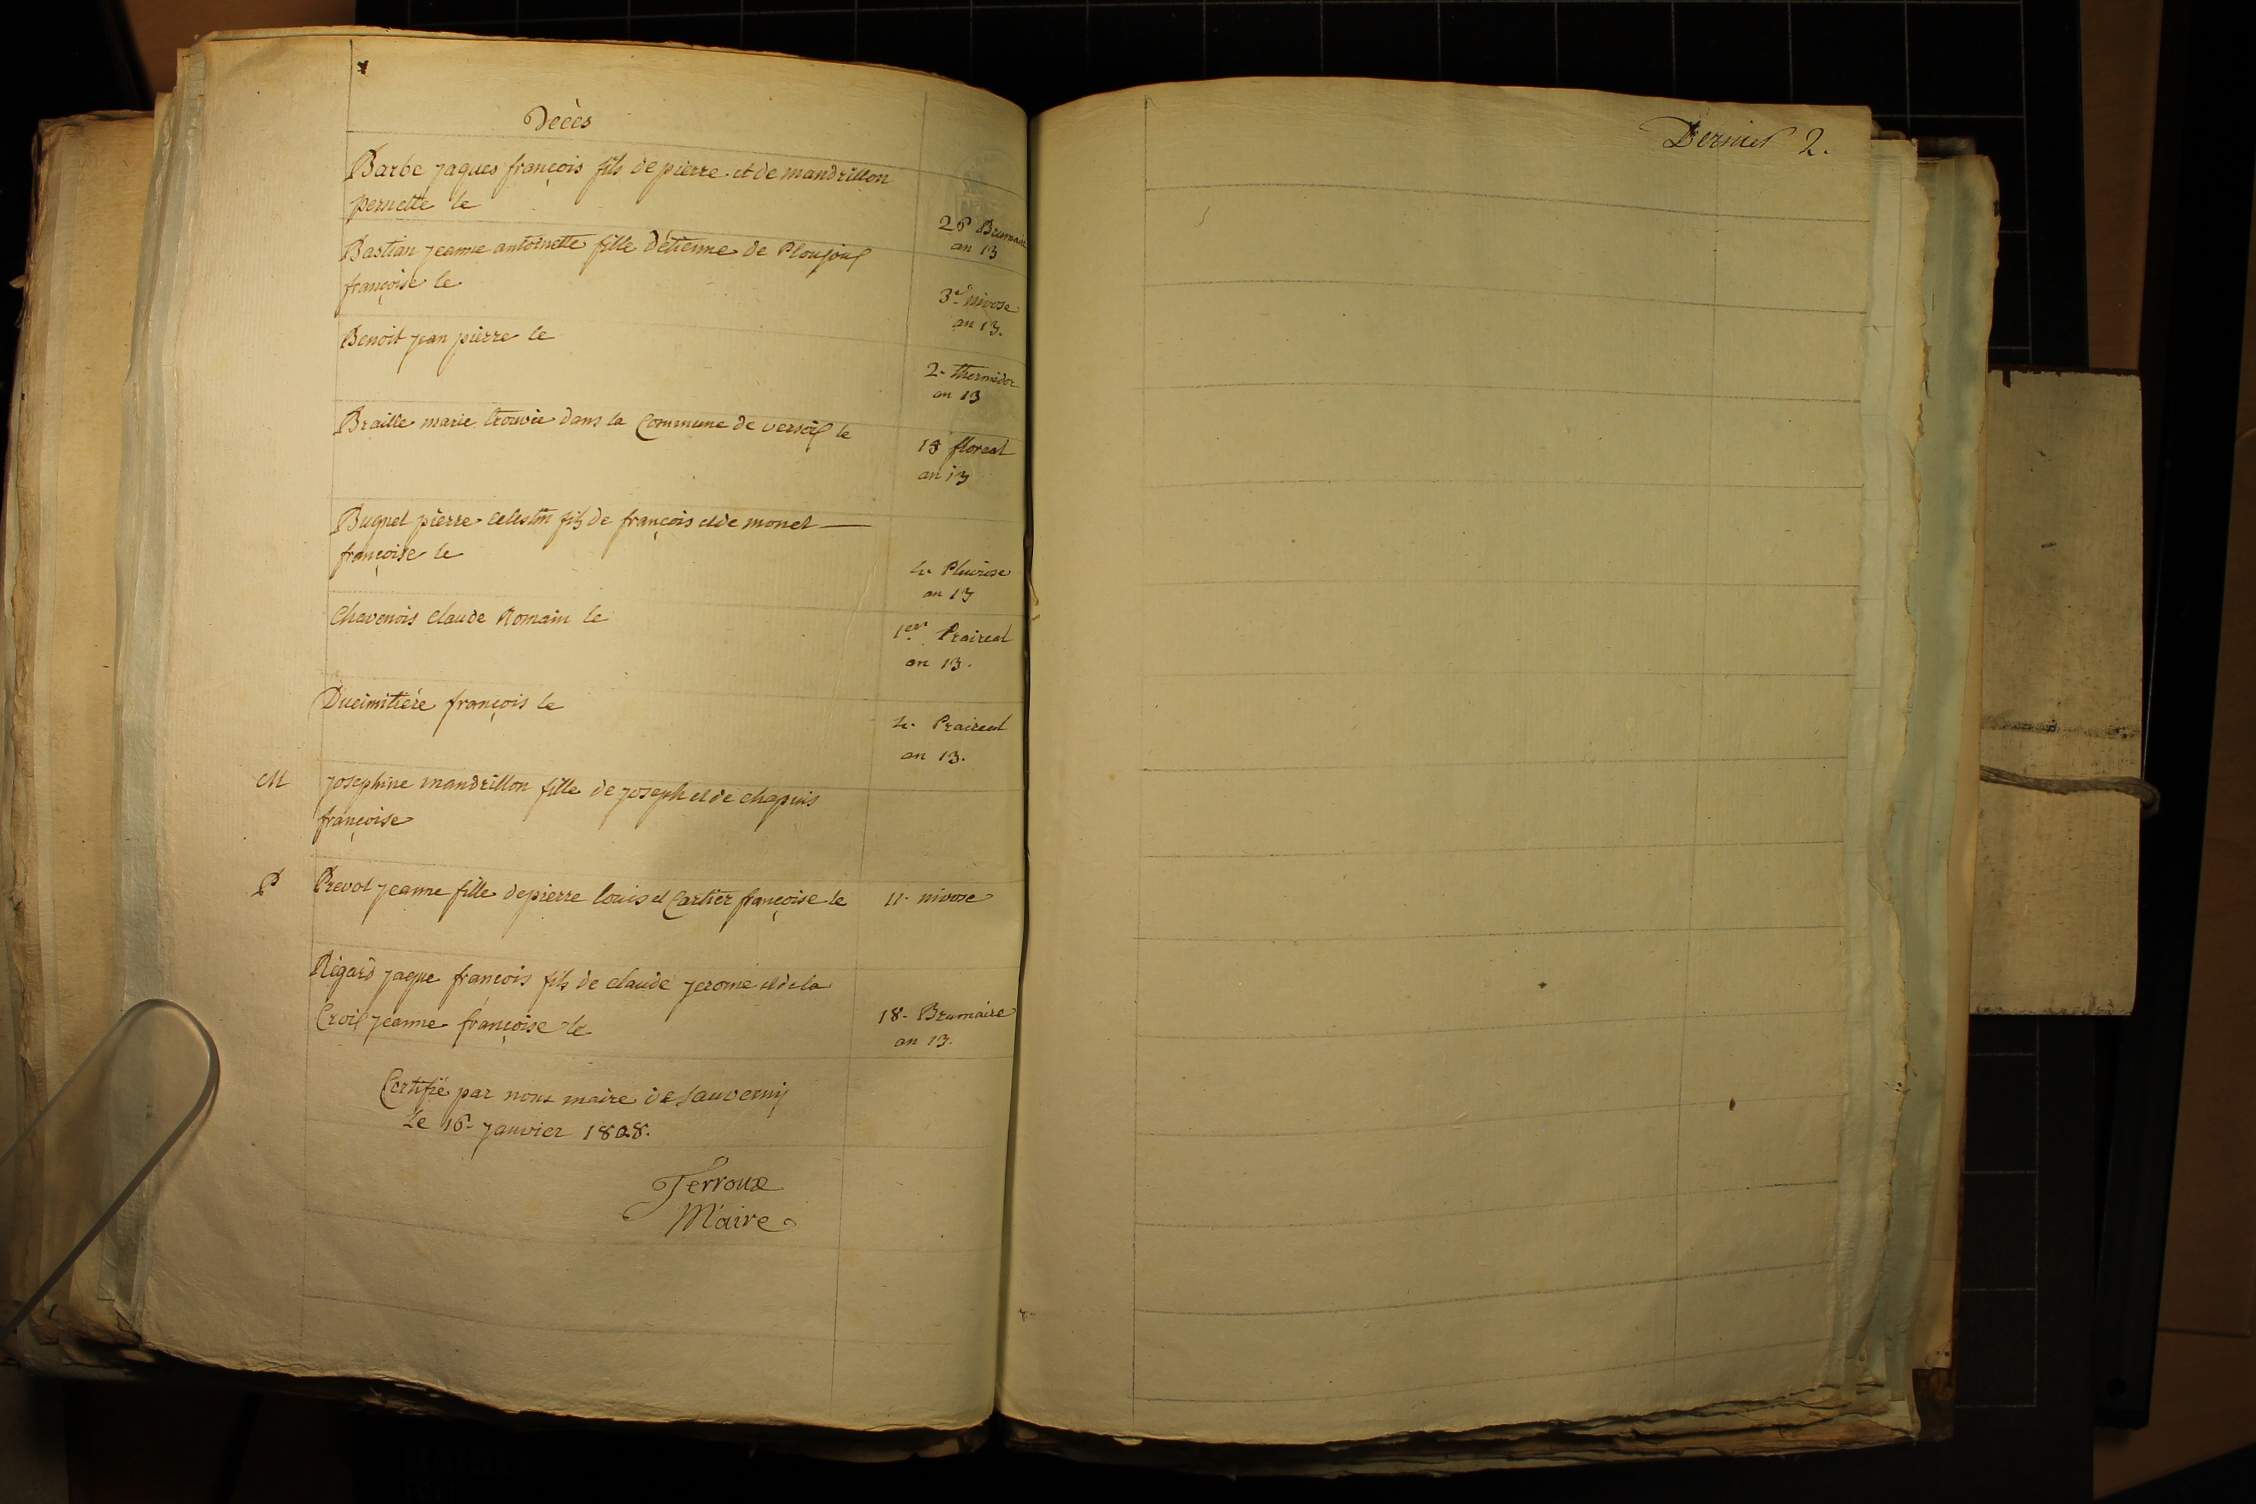 Décès
Barbe jaques françois fils de pierre et de mandrillon
pernette le
26 Brumaire
an 13
Bastian jeanne antoinette fille d'étienne de Ploujoux
françoise le
3e nivose
an 13.
Benoit jean pierre le
2. thermidor
an 13
Braille marie trouvée dans la Commune de versoix le
18 floreal
an 13
Buquet pierre celestin fils de françois et de monet
françoise le
4. Pluviose
an 13
Chavenois claude Romain le
1er Praireal
an 13.
Ducimitiére françois le
4. Praireal
an 13.
M
josephine mandrillon fille de joseph et de chapuis
françoise
P
Prevot jeanne fille de pierre louis et Cartier françoise le
11. nivose
Régard jaque françois fils de claude jerome et de la
Croix jeanne françoise le
18. Brumaire
an 13.
Certifié par nous maire de Sauverny
Le 16. janvier 1808.
Terroux
Maire
Dernier 2.